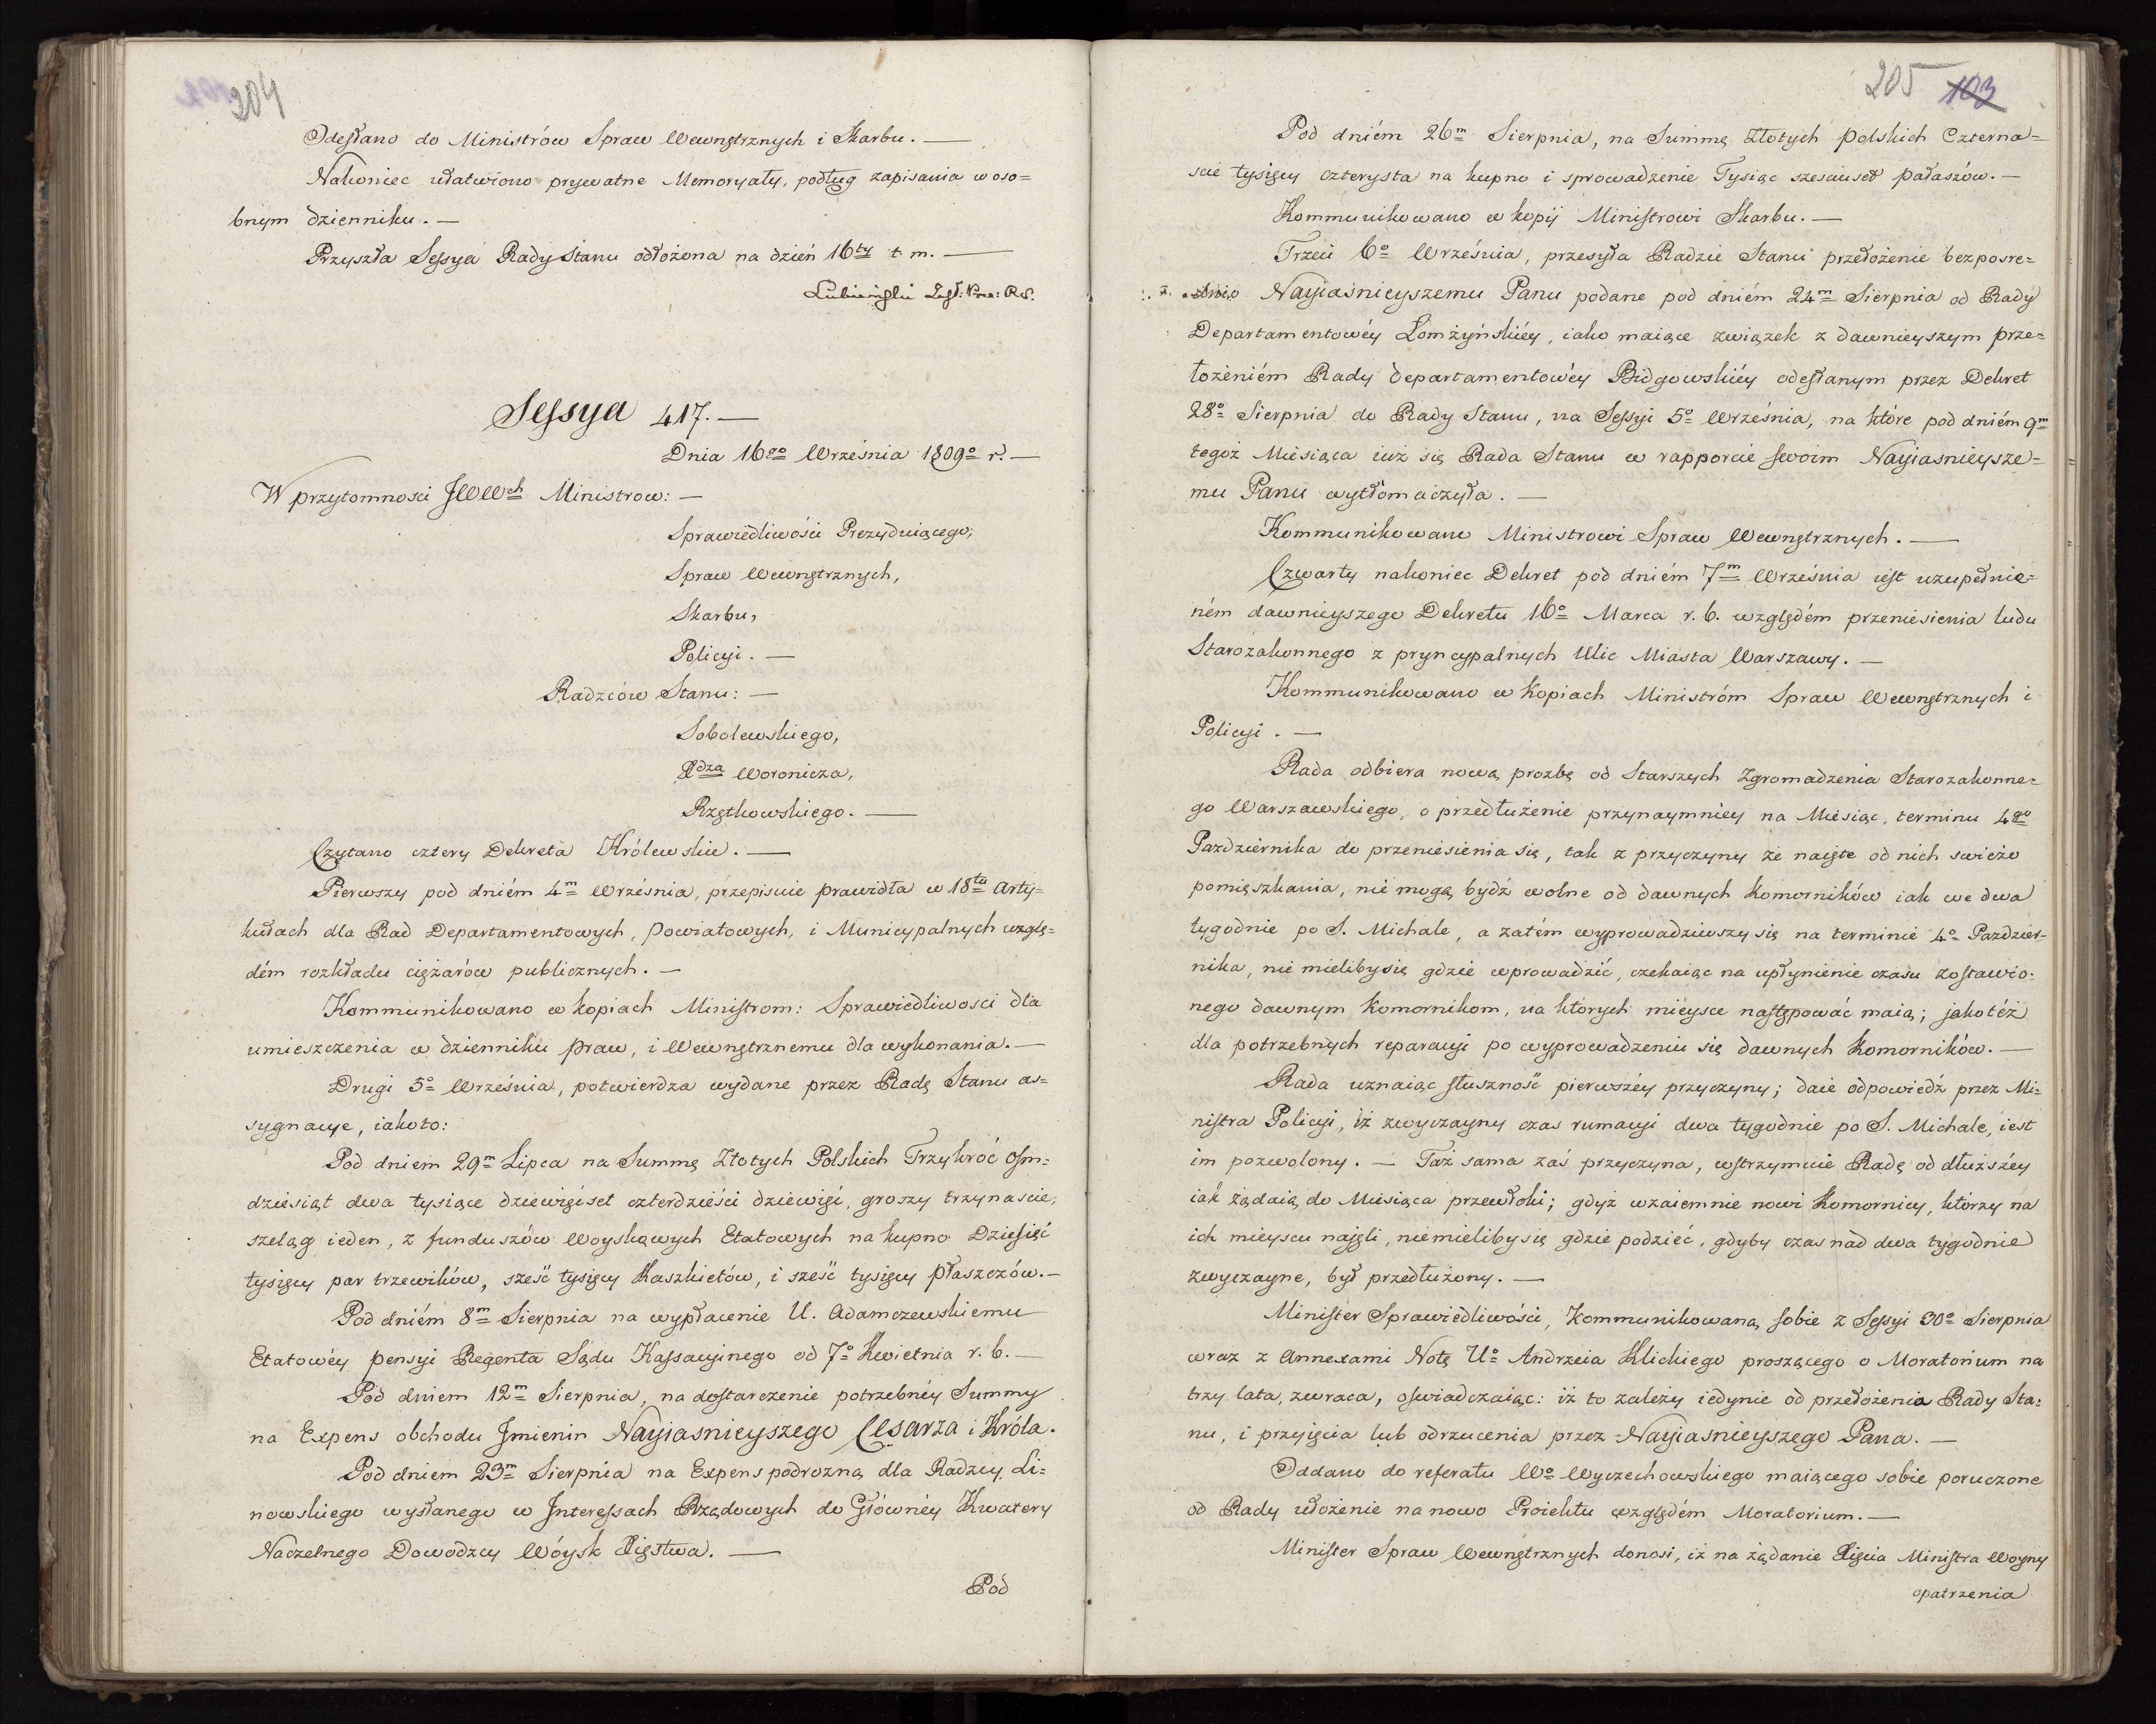 204
Odesłano do Ministrów Spraw Wewnętrznych i Skarbu. —
Nakoniec ułatwiono prywatne Memoryały, podług zapisania w oso=
bnym dzienniku. —
Przyszła Sessya Rady Stanu odłożona na dzień 16ty t. m. —
Lubieński Zast: Prez: R.S.
Sessya 417. —
Dnia 16go Września 1809o r. —
W przytomnosci JWWch Ministrow: —
Sprawiedliwości Prezyduiącego;
Spraw Wewnętrznych,
Skarbu,
Policyi. —
Radzców Stanu: —
Sobolewskiego,
Xdza Woronicza,
Rzętkowskiego. —
Czytano cztery Dekreta Królewskie. —
Pierwszy pod dniém 4m Września, przepisuie prawidła w 18tu Arty=
kułach dla Rad Departamentowych, Powiatowych, i Municypalnych wzglę=
dém rozkładu ciężarów publicznych. —
Kommunikowano w kopiach Ministrom: Sprawiedliwosci dla
umieszczenia w dzienniku praw, i Wewnętrznemu dla wykonania. —
Drugi 5o Września, potwierdza wydane przez Radę Stanu as=
sygnacye, iakoto:
Pod dniem 29m Lipca na Summę Złotych Polskich Trzykroć Ośm=
dziesiąt dwa tysiące dziewięćset czterdzieści dziewięć, groszy trzynascie,
szeląg ieden, z funduszów Woyskowych Etatowych na kupno Dziesięć
tysięcy par trzewików, sześć tysięcy Kaszkietów, i sześć tysięcy płaszczów. —
Pod dniém 8m Sierpnia na wypłacenie U. Adamczewskiemu
Etatowéy pensyi Regenta Sądu Kassacyinego od 7o Kwietnia r. b. —
Pod dniem 12m Sierpnia, na dostarczenie potrzebnéy Summy
na Expens obchodu Jmienin Nayiasnieyszego Cesarza i Króla.
Pod dniem 23m Sierpnia na Expens podrozną dla Radzcy Li=
nowskiego wysłanego w Jnteressach Rządowych do Głównéy Kwatery
Naczelnego Dowodzcy Wóysk Xięstwa. —
Pod
205 103
Pod dniém 26m Sierpnia, na Summę Złotych Polskich Czterna=
scie tysięcy czterysta na kupno i sprowadzenie Tysiąc szesciuset pałaszów. —
Kommunikowano w kopij Ministrowi Skarbu. —
Trzeci 6o Września, przesyła Radzie Stanu przełożenie bezposre=
dnio Nayiaśnieyszemu Panu podane pod dniém 24m Sierpnia od Rady
Departamentowéy Łomżyńskiéy, iako maiące związek z dawnieyszym prze=
łożeniém Rady departamentowéy Bidgowskiéy odesłanym przez Dekret
28o Sierpnia do Rady Stanu, na Sessyi 5o Września, na które pod dniém 9m
tegoż Miesiąca iuż się Rada Stanu w rapporcie swoim Nayiasnieysze=
mu Panu wytłómaczyła. —
Kommunikowano Ministrowi Spraw Wewnętrznych. —
Czwarty nakoniec Dekret pod dniém 7m Września iest uzupełnie=
ném dawnieyszego Dekretu 16o Marca r. b. względém przeniesienia ludu
Starozakonnego z pryncypalnych Ulic Miasta Warszawy. —
Kommunikowano w kopiach Ministróm Spraw Wewnętrznych i
Policyi. —
Rada odbiera nową prozbę od Starszych Zgromadzenia Starozakonne=
go Warszawskiego, o przedłużenie przynaymniéy na Miesiąc, terminu 4go
Pazdziernika do przeniesienia się, tak z przyczyny że naięte od nich swieżo
pomięszkania, nie mogą bydź wolne od dawnych Komorników iak we dwa
tygodnie po S. Michale, a zatém wyprowadziwszy się na terminie 4o Pazdzier=
nika, nie mielibysię gdzie wprowadzić, czekaiąc na upłynienie czasu zostawio=
nego dawnym Komornikom, na których mieysce następować maią; jakotéż
dla potrzebnych reparacyi po wyprowadzeniu się dawnych Komorników. —
Rada uznaiąc słuszność pierwszéy przyczyny; daie odpowiedź przez Mi=
nistra Policyi, iż zwyczayny czas rumacyi dwa tygodnie po S. Michale, iest
im pozwolony. — Taż sama zaś przyczyna, wstrzymuie Radę od dłuższéy
iak żądaią do Miesiąca przewłoki; gdyż wzaiemnie nowi Komornicy, którzy na
ich mieyscu najęli, niemielibysię gdzie podzieć, gdyby czas nad dwa tygodnie
zwyczayne, był przedłużony. —
Minister Sprawiedliwości, Kommunikowaną sobie z Sessyi 30o Sierpnia
wraz z Annexami Notę Uo Andrzeia Klickiego proszącego o Moratorium na
trzy lata, zwraca, oswiadczaiąc: iż to zależy iedynie od przełożenia Rady Sta=
nu, i przyięcia lub odrzucenia przez Nayiasnieyszego Pana. —
Oddano do referatu Wo Wyczechowskiego maiącego sobie poruczone
od Rady ułożenie na nowo Proiektu względém Moratorium. —
Minister Spraw Wewnętrznych donosi, iż na żądanie Xięcia Ministra Woyny
opatrzenia